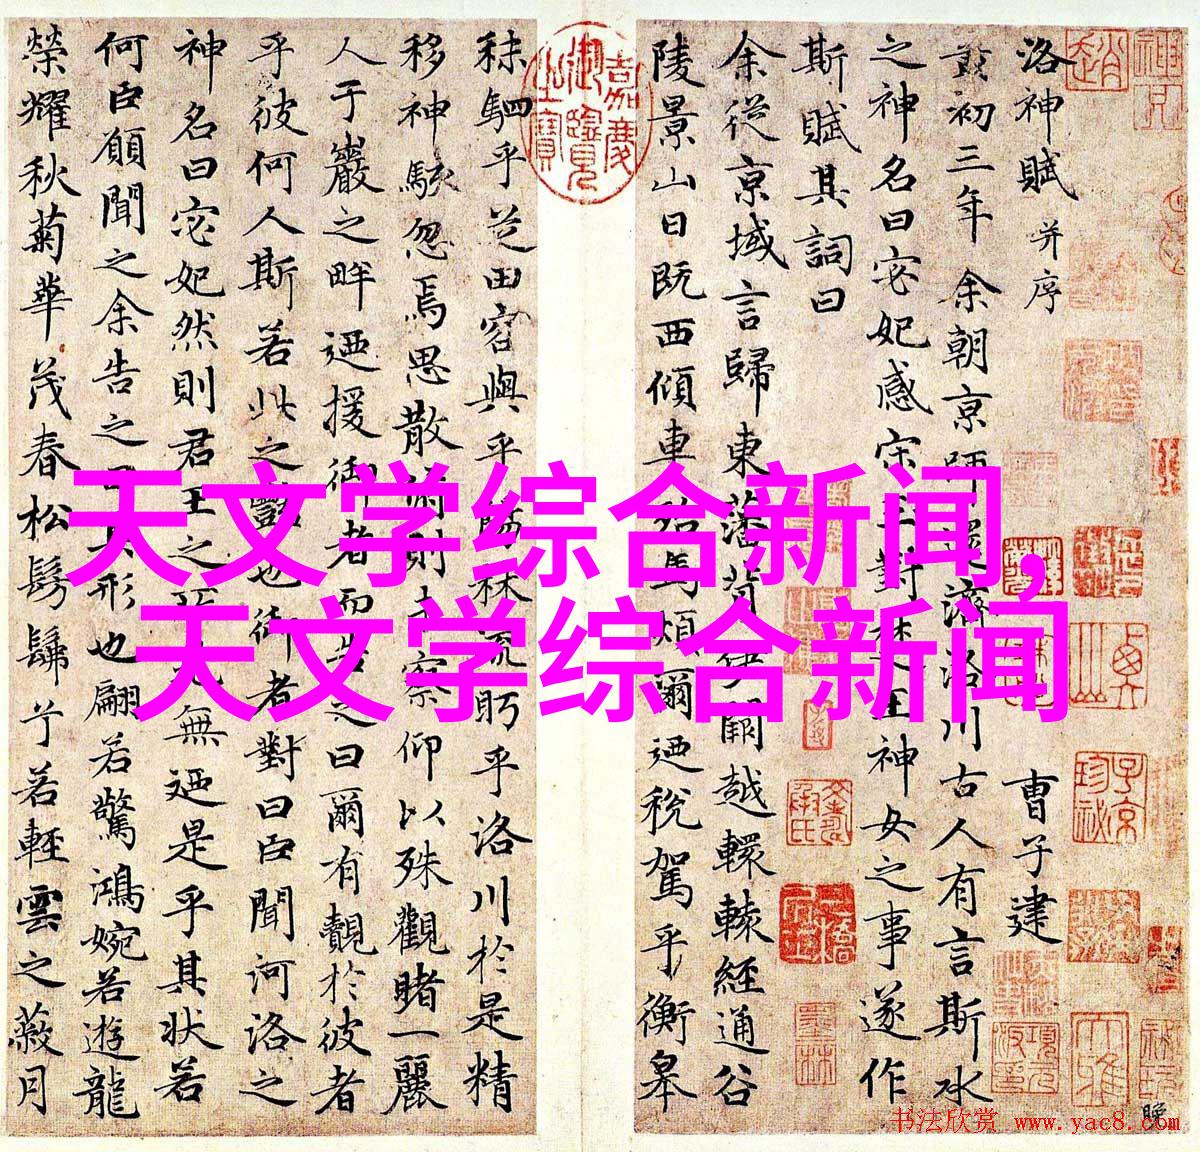 天文学综合新闻,
天文学综合新闻
洛神賦 并序 曹子建
黃初三年余朝京師還濟洛川古人有言斯水
之神名曰宓妃感宋玉對楚王神女之事遂作
斯賦其詞曰
余從京域言歸東藩背伊闕越轘轅經通谷
陵景山日既西傾車殆馬煩爾迺稅駕乎衡皋
嘉慶御覽之寶
秣駟乎芝田容與乎陽林流眄乎洛川於是精
移神駭忽焉思散俯則未察仰以殊觀睹一麗
人于巖之畔迺援御者而告之曰爾有覿於彼者
乎彼何人斯若此之豔也御者對曰臣聞河洛之
神名曰宓妃然則君王之所見無迺是乎其狀若
何臣願聞之余告之曰其形也翩若驚鴻婉若遊龍
榮耀秋菊華茂春松髣髴兮若輕雲之蔽月
书法欣赏 www.yac8.com